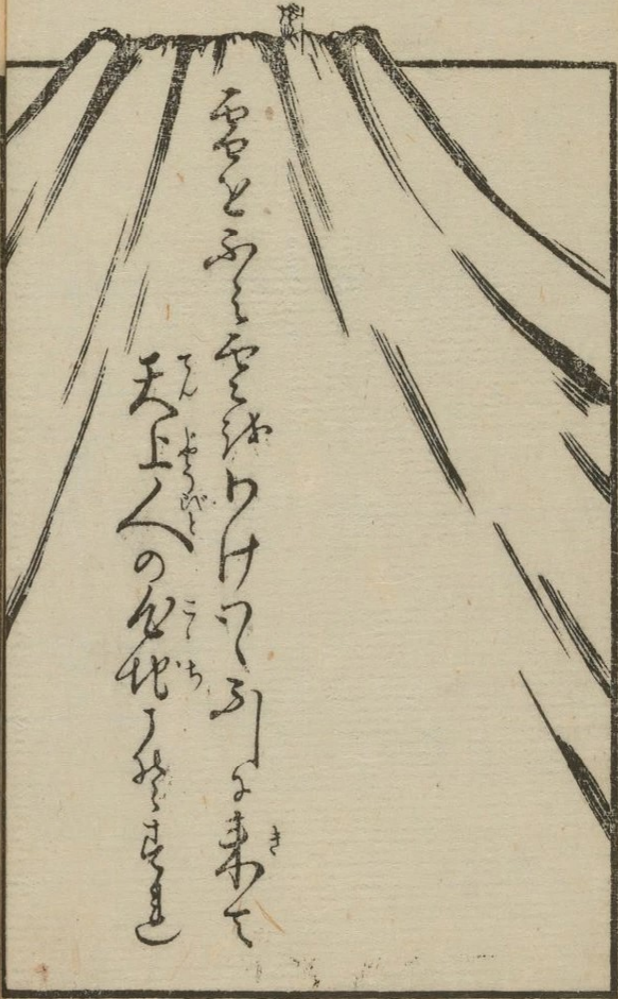 雪をふみ雲をわけつゝふじに来て
天上人の心地こそすれ